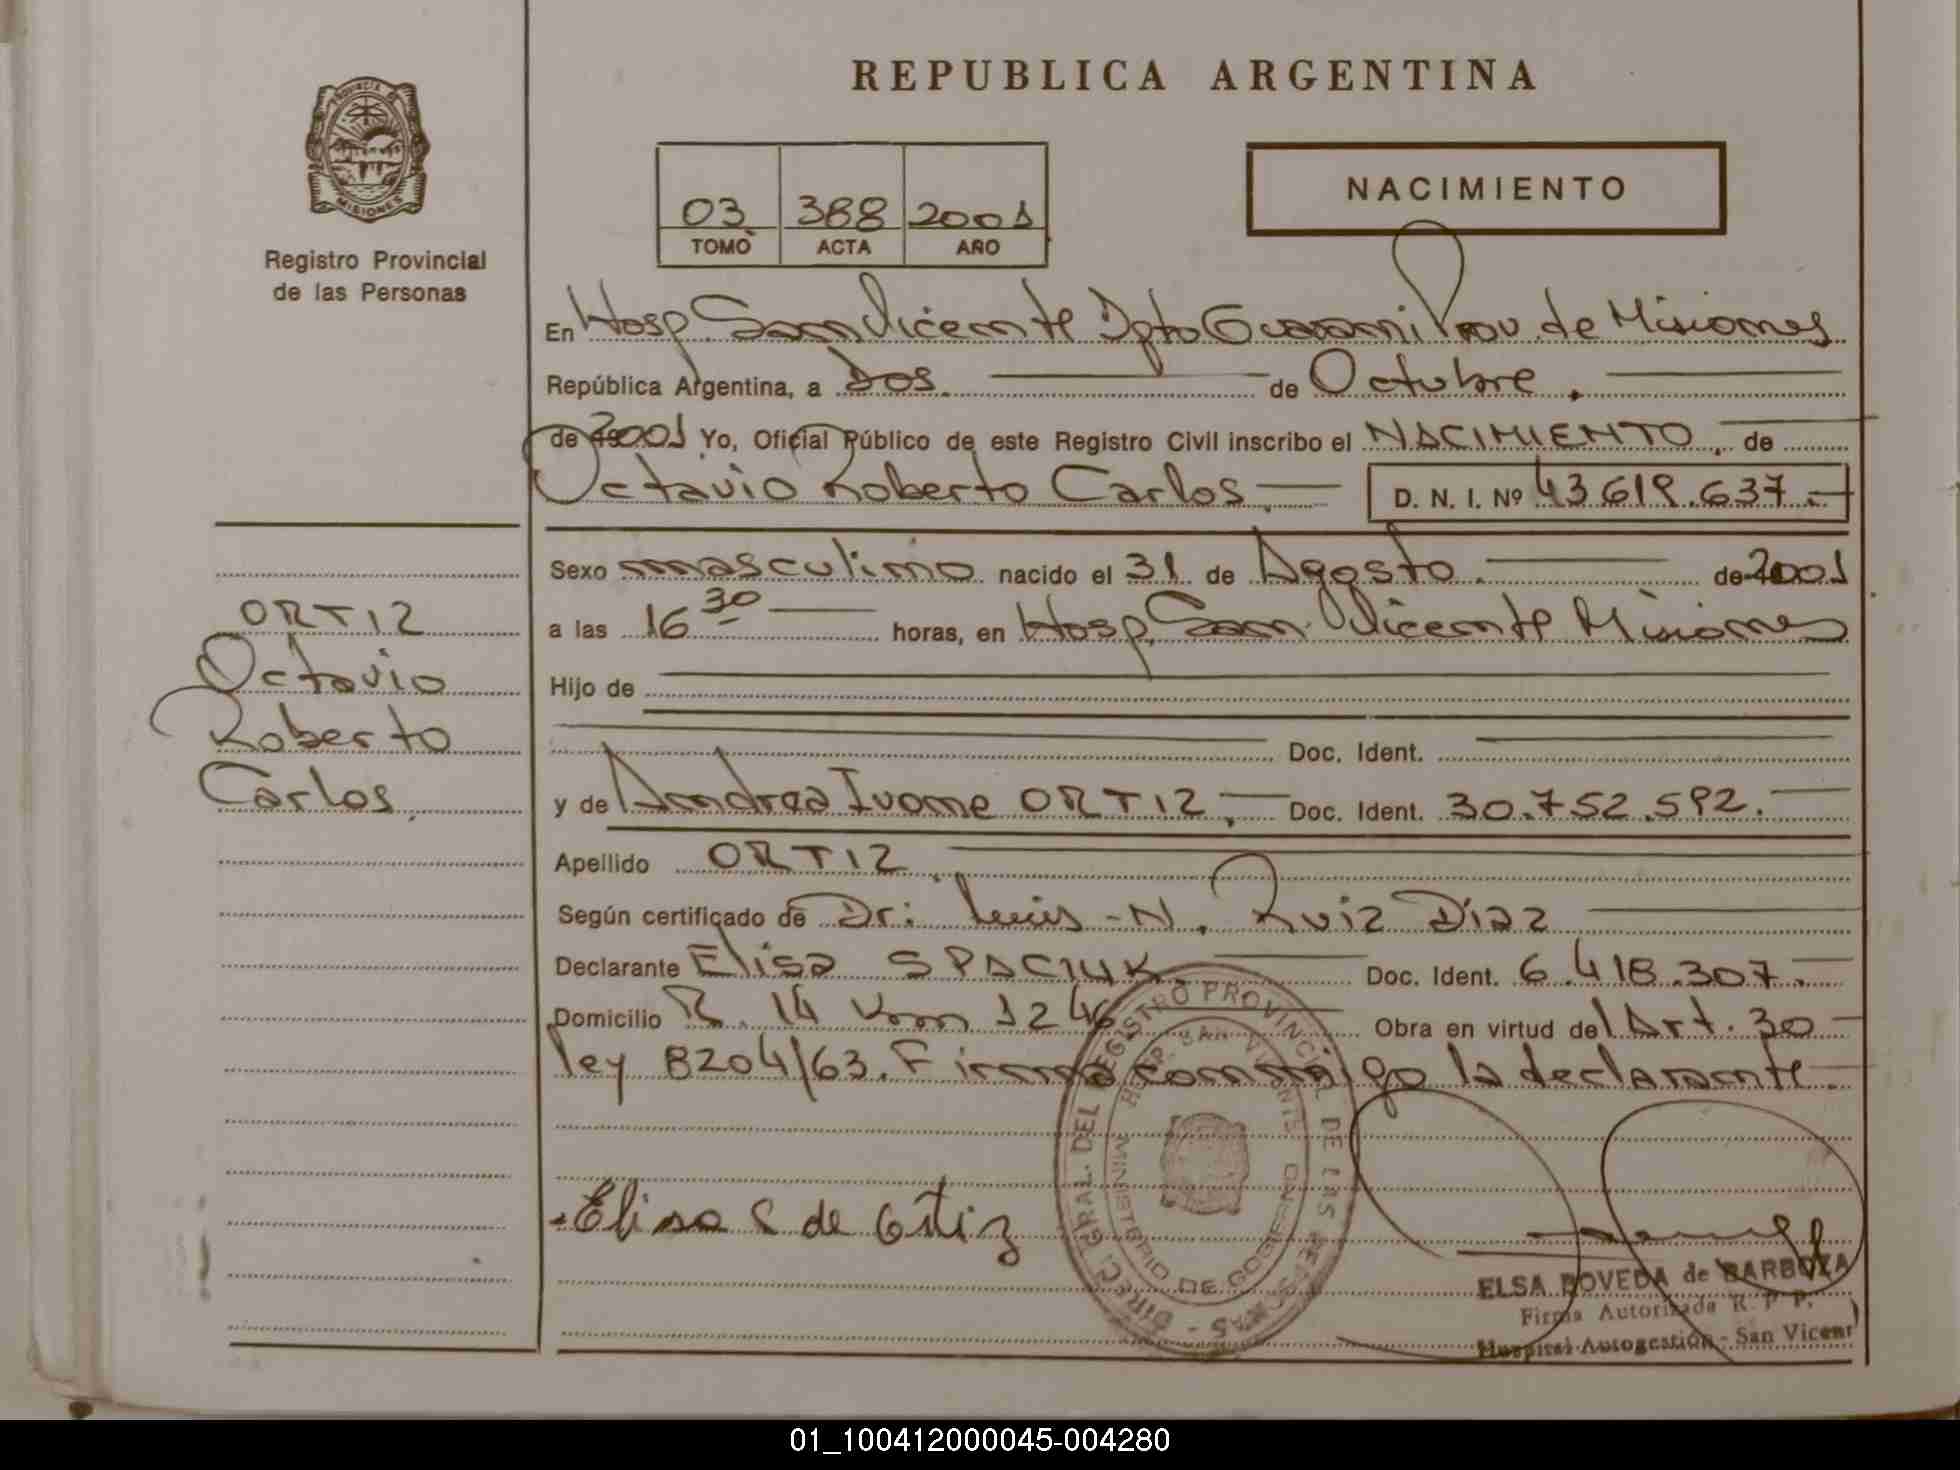 REPUBLICA ARGENTINA
PROVINCIA DE
MISIONES
Registro Provincial
de las Personas
03 388 2001
TOMO ACTA AÑO
NACIMIENTO
En Hosp. San Vicente Dpto Guarani Prov. de Misiones
República Argentina, a Dos. de Octubre.
de 2001 Yo, Oficial Público de este Registro Civil inscribo el NACIMIENTO, de
Octavio Roberto Carlos. D. N. I. Nº 43.619.637.-
Sexo masculino nacido el 31 de Agosto. de 2001
a las 16 30 horas, en Hosp. San Vicente Misiones
Hijo de
Doc. Ident.
y de Andrea Ivone ORTIZ. Doc. Ident. 30.752.592.
Apellido ORTIZ.
Según certificado de Dr: Luis N. Ruiz Diaz
Declarante Elisa SPACIUK Doc. Ident. 6.418.307.
Domicilio R. 14 Km 1246 Obra en virtud del Art. 30
ley 8204/63. Firma conmigo la declarante.
ORTIZ
Octavio
Roberto
Carlos.
Elisa S de Ortiz
DIREC. GRAL. DEL REGISTRO PROVINCIAL DE LAS PERSONAS -
HOSP. SAN VICENTE
MINISTERIO DE GOBIERNO
ELSA POVEDA de BARBOZA
Firma Autorizada R. P. P.
Hospital Autogestión - San Vicent
01_100412000045-004280